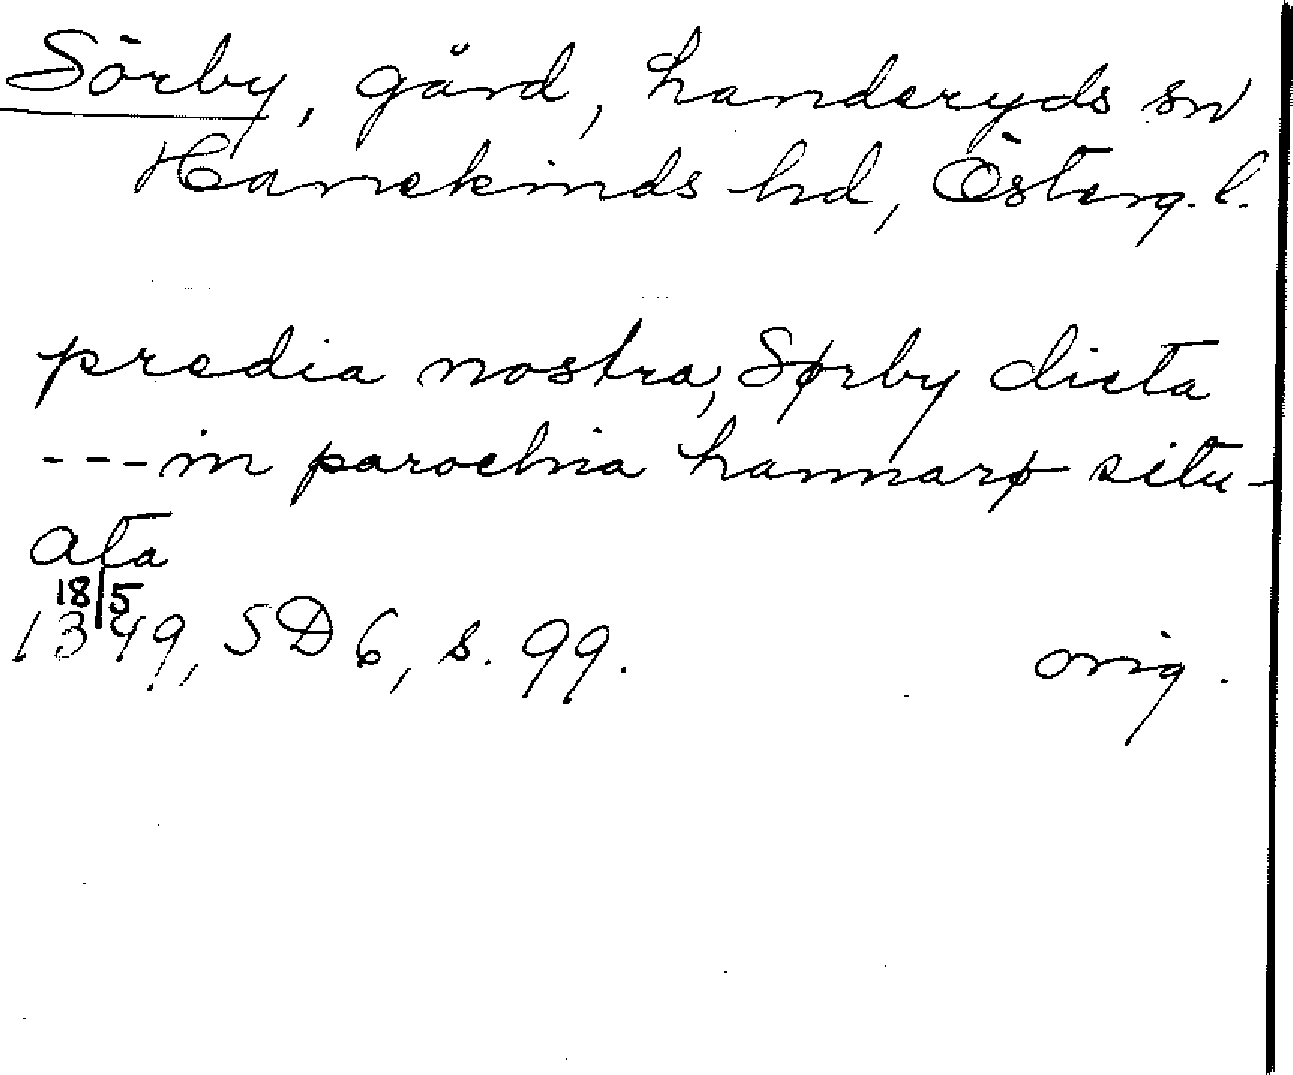 Sörby, gård, Landeryds sn
Hanekinds hd, Österg. l.
predia nostra, Sørby dicta
--- in parochia Lannarø situ-
ata
18/5
1349, SD 6, s. 99. orig.